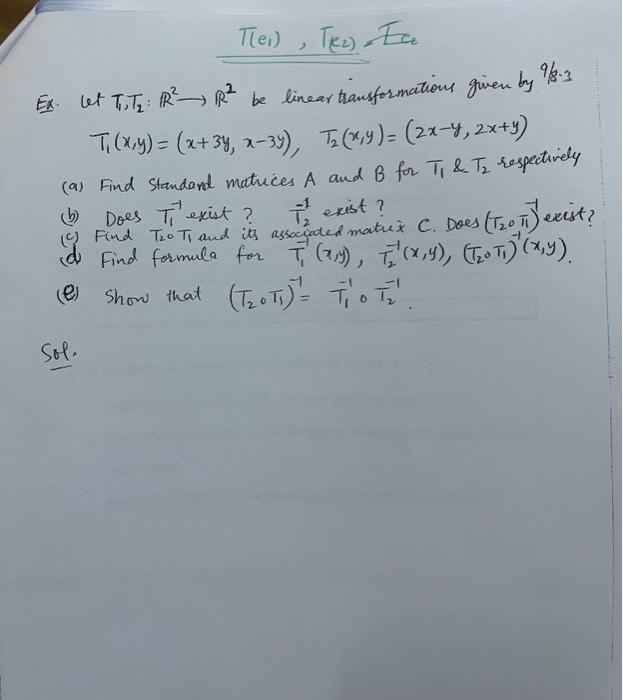 T(e1) , T(e2)
Ex. Let T1,T2: R² → R² be linear transformations given by 9/8.3
T1(x,y) = (x+3y, x-3y), T2(x,y) = (2x-y, 2x+y)
(a) Find Standard matrices A and B for T1 & T2 respectively
(b) Does T1⁻¹ exist ? T2⁻¹ exist ?
(c) Find T2∘T1 and its associated matrix C. Does (T2∘T1)⁻¹ exist?
(d) Find formula for T1⁻¹(x,y), T2⁻¹(x,y), (T2∘T1)⁻¹(x,y).
(e) Show that (T2∘T1)⁻¹ = T1⁻¹ ∘ T2⁻¹.
Sol.